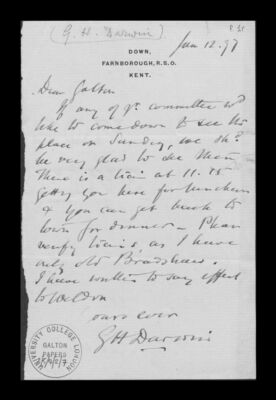 (G. H. Darwin)
DOWN,
FARNBOROUGH, R.S.O.
KENT.
Jan 12. 97
Dear Galton
If any of yr. committee wd
like to come down to see the
place on Sunday, we shd
be very glad to see them
There is a train at 11.15
getting you here for luncheon
& you can get back to
town for dinner – Please
verify trains, as I have
only old Bradshaw.
I have written to say effect
to Weldon
yours ever
G H Darwin
UNIVERSITY COLLEGE LONDON
GALTON
PAPERS